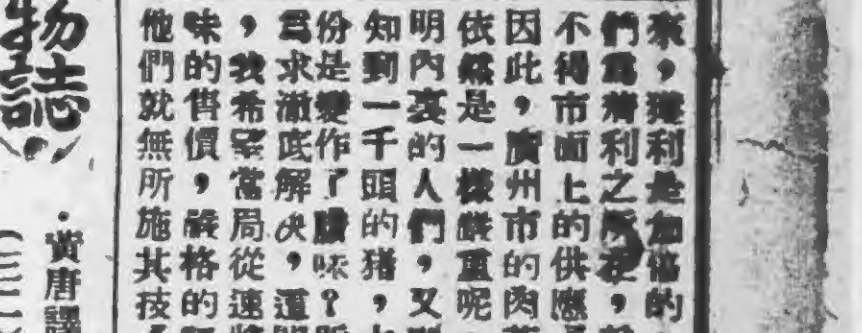 來，獲利是加倍的
們爲着利之所在，
不得市面上的供應
因此，廣州市的肉
依然是一樣嚴重呢
明內裏的人們，又
知到一千頭的猪，
份是變作了臘味？
爲求澈底解决，
，我希望當局從速將
味的售價，嚴格的
他們就無所施其技
物誌
·黄唐譯